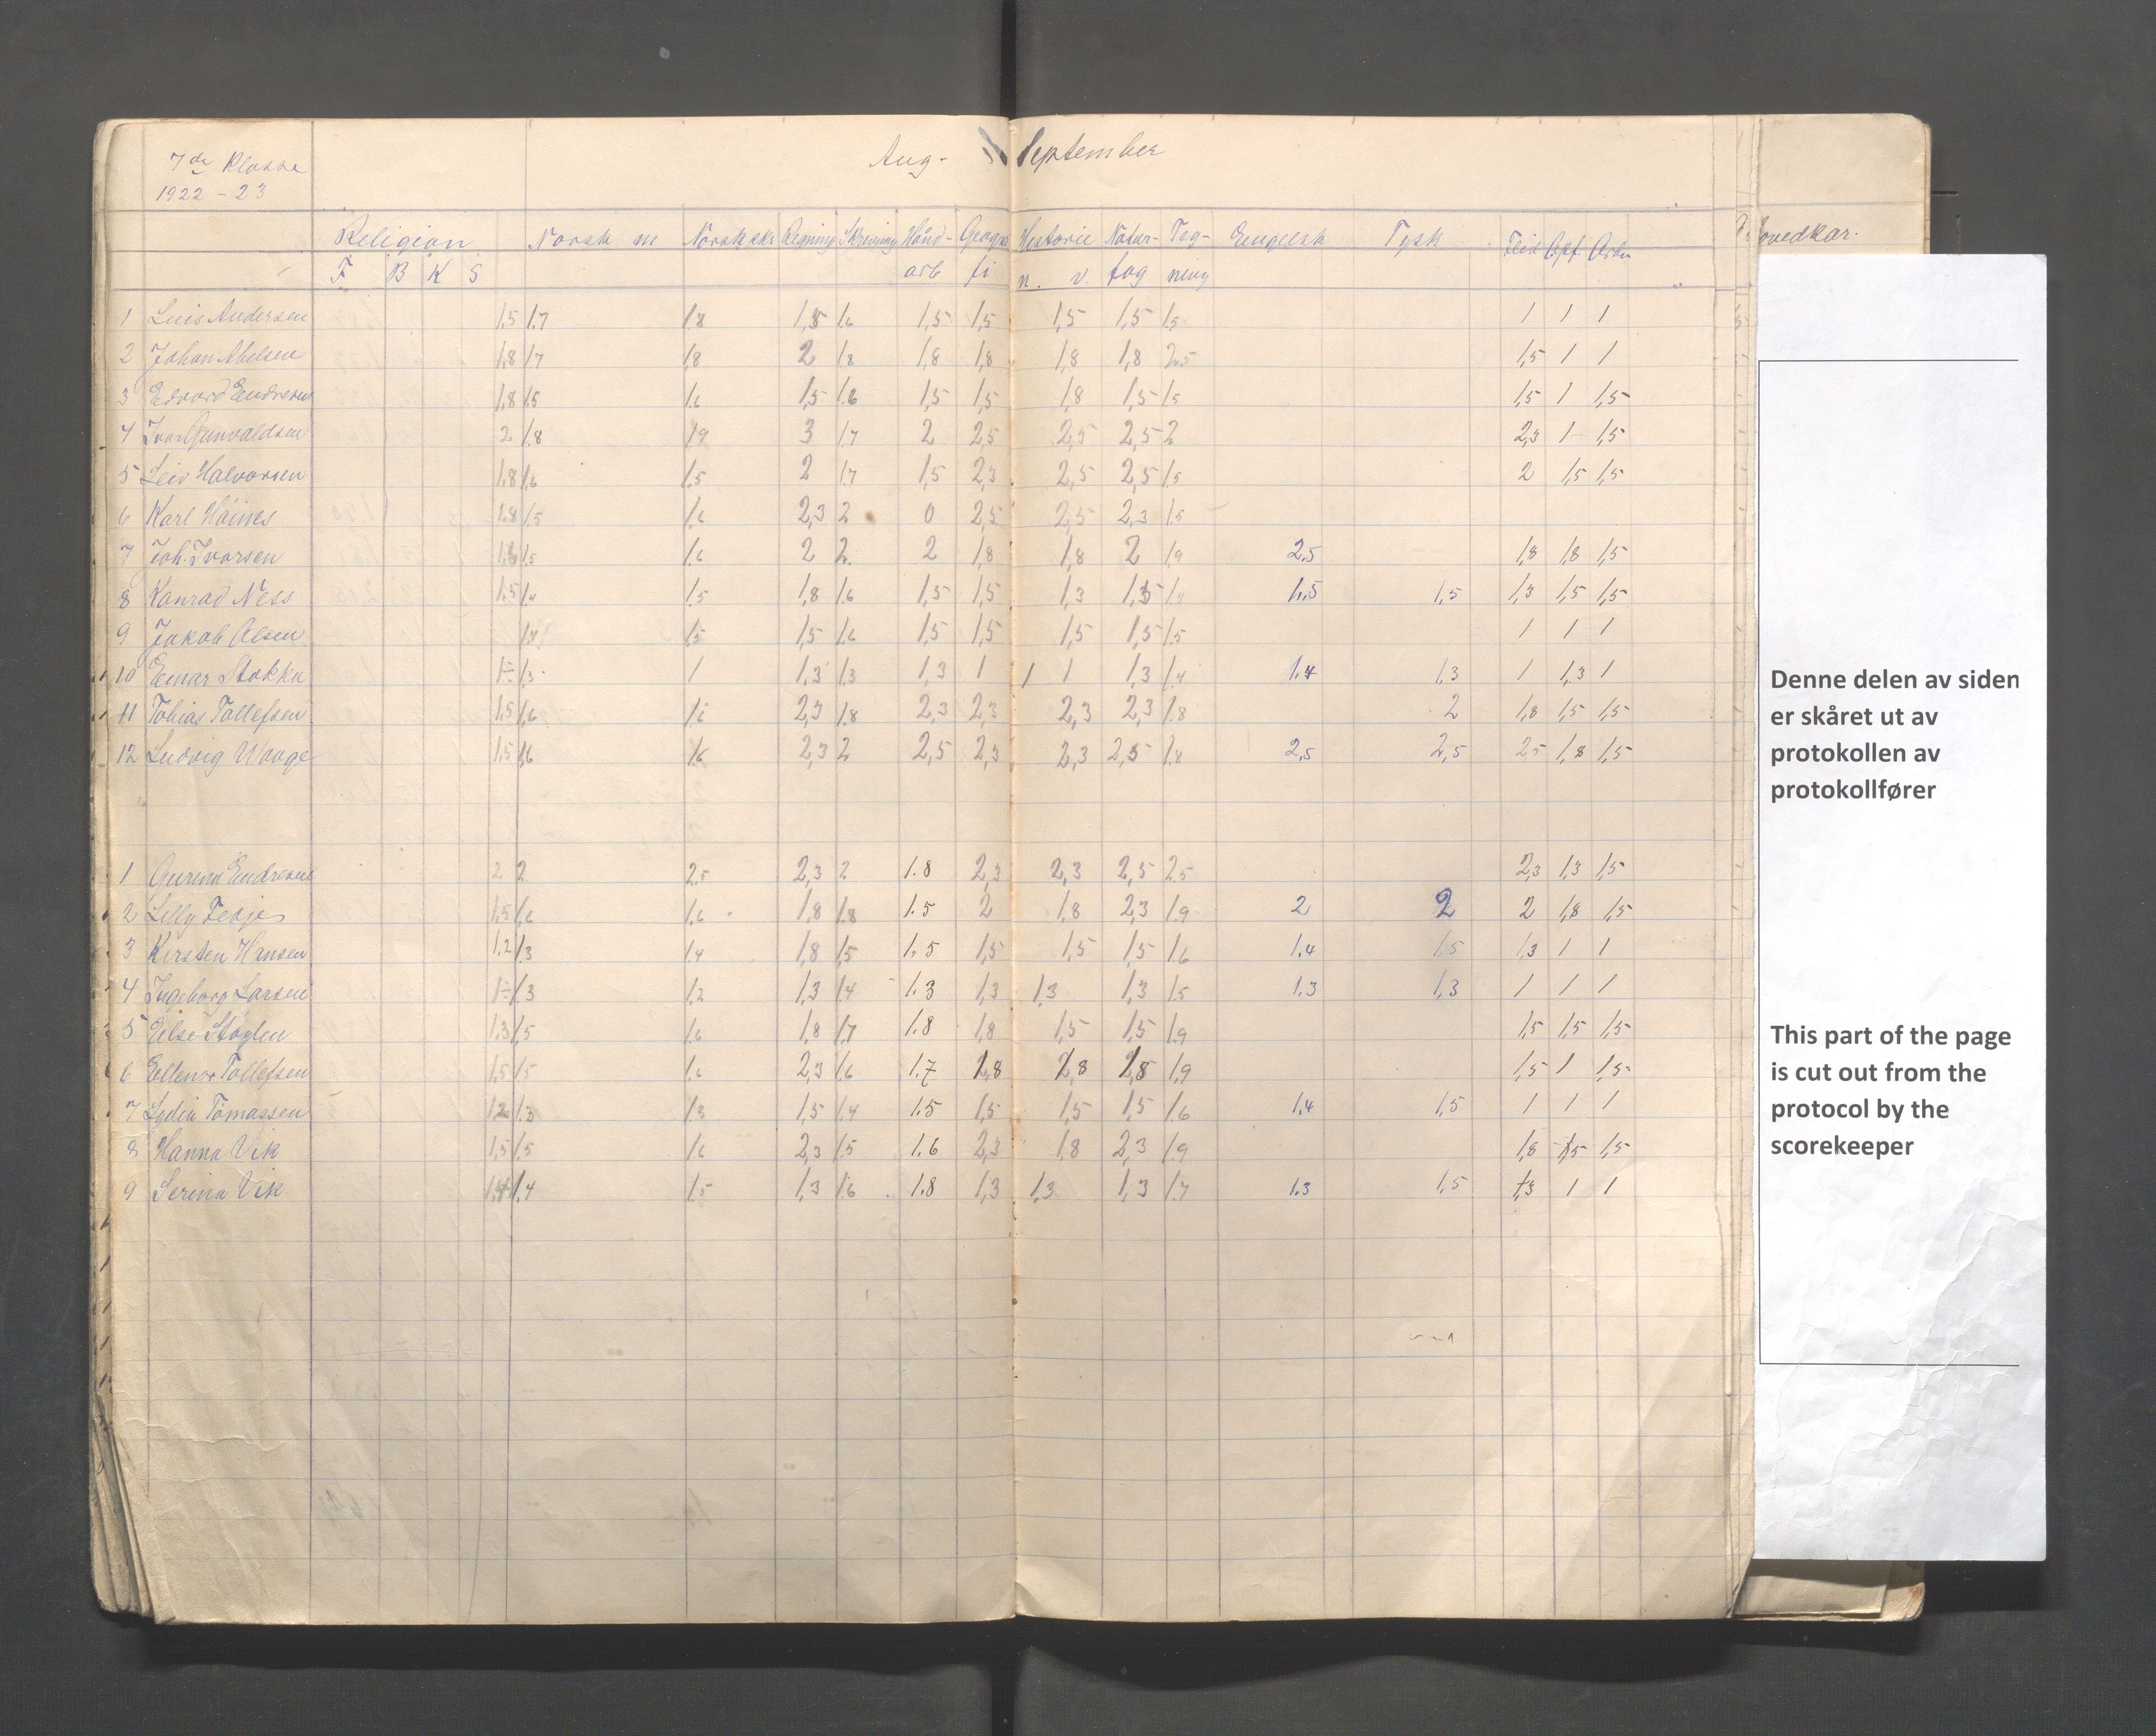 7de Klasse
1922 - 23
Aug- September
Religion Norsk m Norsk skr Regning Skrivning Hånd- Geogra Historie Natur- Teg- Engelsk Tysk Flid Opf. Orden ovedkar.
F B K S arb fi n. v. fag ning
1 Andersen 1,5 1,7 1,8 1,5 1,6 1,5 1,5 1,5 1,5 1,5 1 1 1
2 Johan Abelsen 1,8 1,7 1,8 2 1,8 1,8 1,8 1,8 1,8 2,5 1,5 1 1
3 Edvard Endresen 1,8 1,5 1,6 1,5 1,6 1,5 1,5 1,8 1,5 1,5 1,5 1 1,5
4 Ivar Gunvaldsen 2 1,8 1,9 3 1,7 2 2,5 2,5 2,5 2 2,3 1 1,5
5 Leiv Halvorsen 1,8 1,6 1,5 2 1,7 1,5 2,3 2,5 2,5 1,5 2 1,5 1,5
6 Karl 1,8 1,5 1,6 2,3 2 0 2,5 2,5 2,3 1,5
7 Joh. Ivarsen 1,6 1,5 1,6 2 2 2 1,8 1,8 2 1,9 2,5 1,8 1,8 1,5
8 Konrad Ness 1,5 1,4 1,5 1,8 1,6 1,5 1,5 1,3 1,3 1,4 1,5 1,5 1,3 1,5 1,5
9 Jakob Olsen 1,5 1,5 1,6 1,5 1,5 1,5 1,5 1,5 1 1 1
10 Einar Stokka 1÷ 1,3 1 1,3 1,3 1,3 1 1 1 1,3 1,4 1,4 1,3 1 1,3 1
11 Tobias Tollefsen 1,5 1,6 1,6 2,3 1,8 2,3 2,3 2,3 2,3 1,8 2 1,8 1,5 1,5
12 Ludvig Waage 1,5 1,6 1,6 2,3 2 2,5 2,3 2,3 2,5 1,8 2,5 2,5 2,5 1,8 1,5
1 Gurina Endresen 2 2 2,5 2,3 2 1.8 2,3 2,3 2,5 2,5 2,3 1,3 1,5
2 Lilly Fedje 1,5 1,6 1,6 1,8 1,8 1.5 2 1,8 2,3 1,9 2 2 2 1,8 1,5
3 Kirsten Hansen 1,2 1,3 1,4 1,8 1,5 1.5 1,5 1,5 1,5 1,6 1,4 1,5 1,3 1 1
4 Ingeborg Larsen 1÷ 1,3 1,2 1,3 1,4 1.3 1,3 1,3 1,3 1,5 1,3 1,3 1 1 1
5 Else 1,3 1,5 1,6 1,8 1,7 1.8 1,8 1,5 1,5 1,9 1,5 1,5 1,5
6 Ellenor Tollefsen 1,5 1,5 1,6 2,3 1,6 1.7 1,8 1,8 1,8 1,9 1,5 1 1,5
7 Lydia Tomassen 1,2 1,3 1,3 1,5 1,4 1.5 1,5 1,5 1,5 1,6 1,4 1,5 1 1 1
8 Hanna Vik 1,5 1,5 1,6 2,3 1,5 1.6 2,3 1,8 2,3 1,9 1,8 1,5 1,5
9 Serina Vik 1,4 1,4 1,5 1,3 1,6 1.8 1,3 1,3 1,3 1,7 1,3 1,5 1,3 1 1
Denne delen av siden
er skåret ut av
protokollen av
protokollfører
This part of the page
is cut out from the
protocol by the
scorekeeper